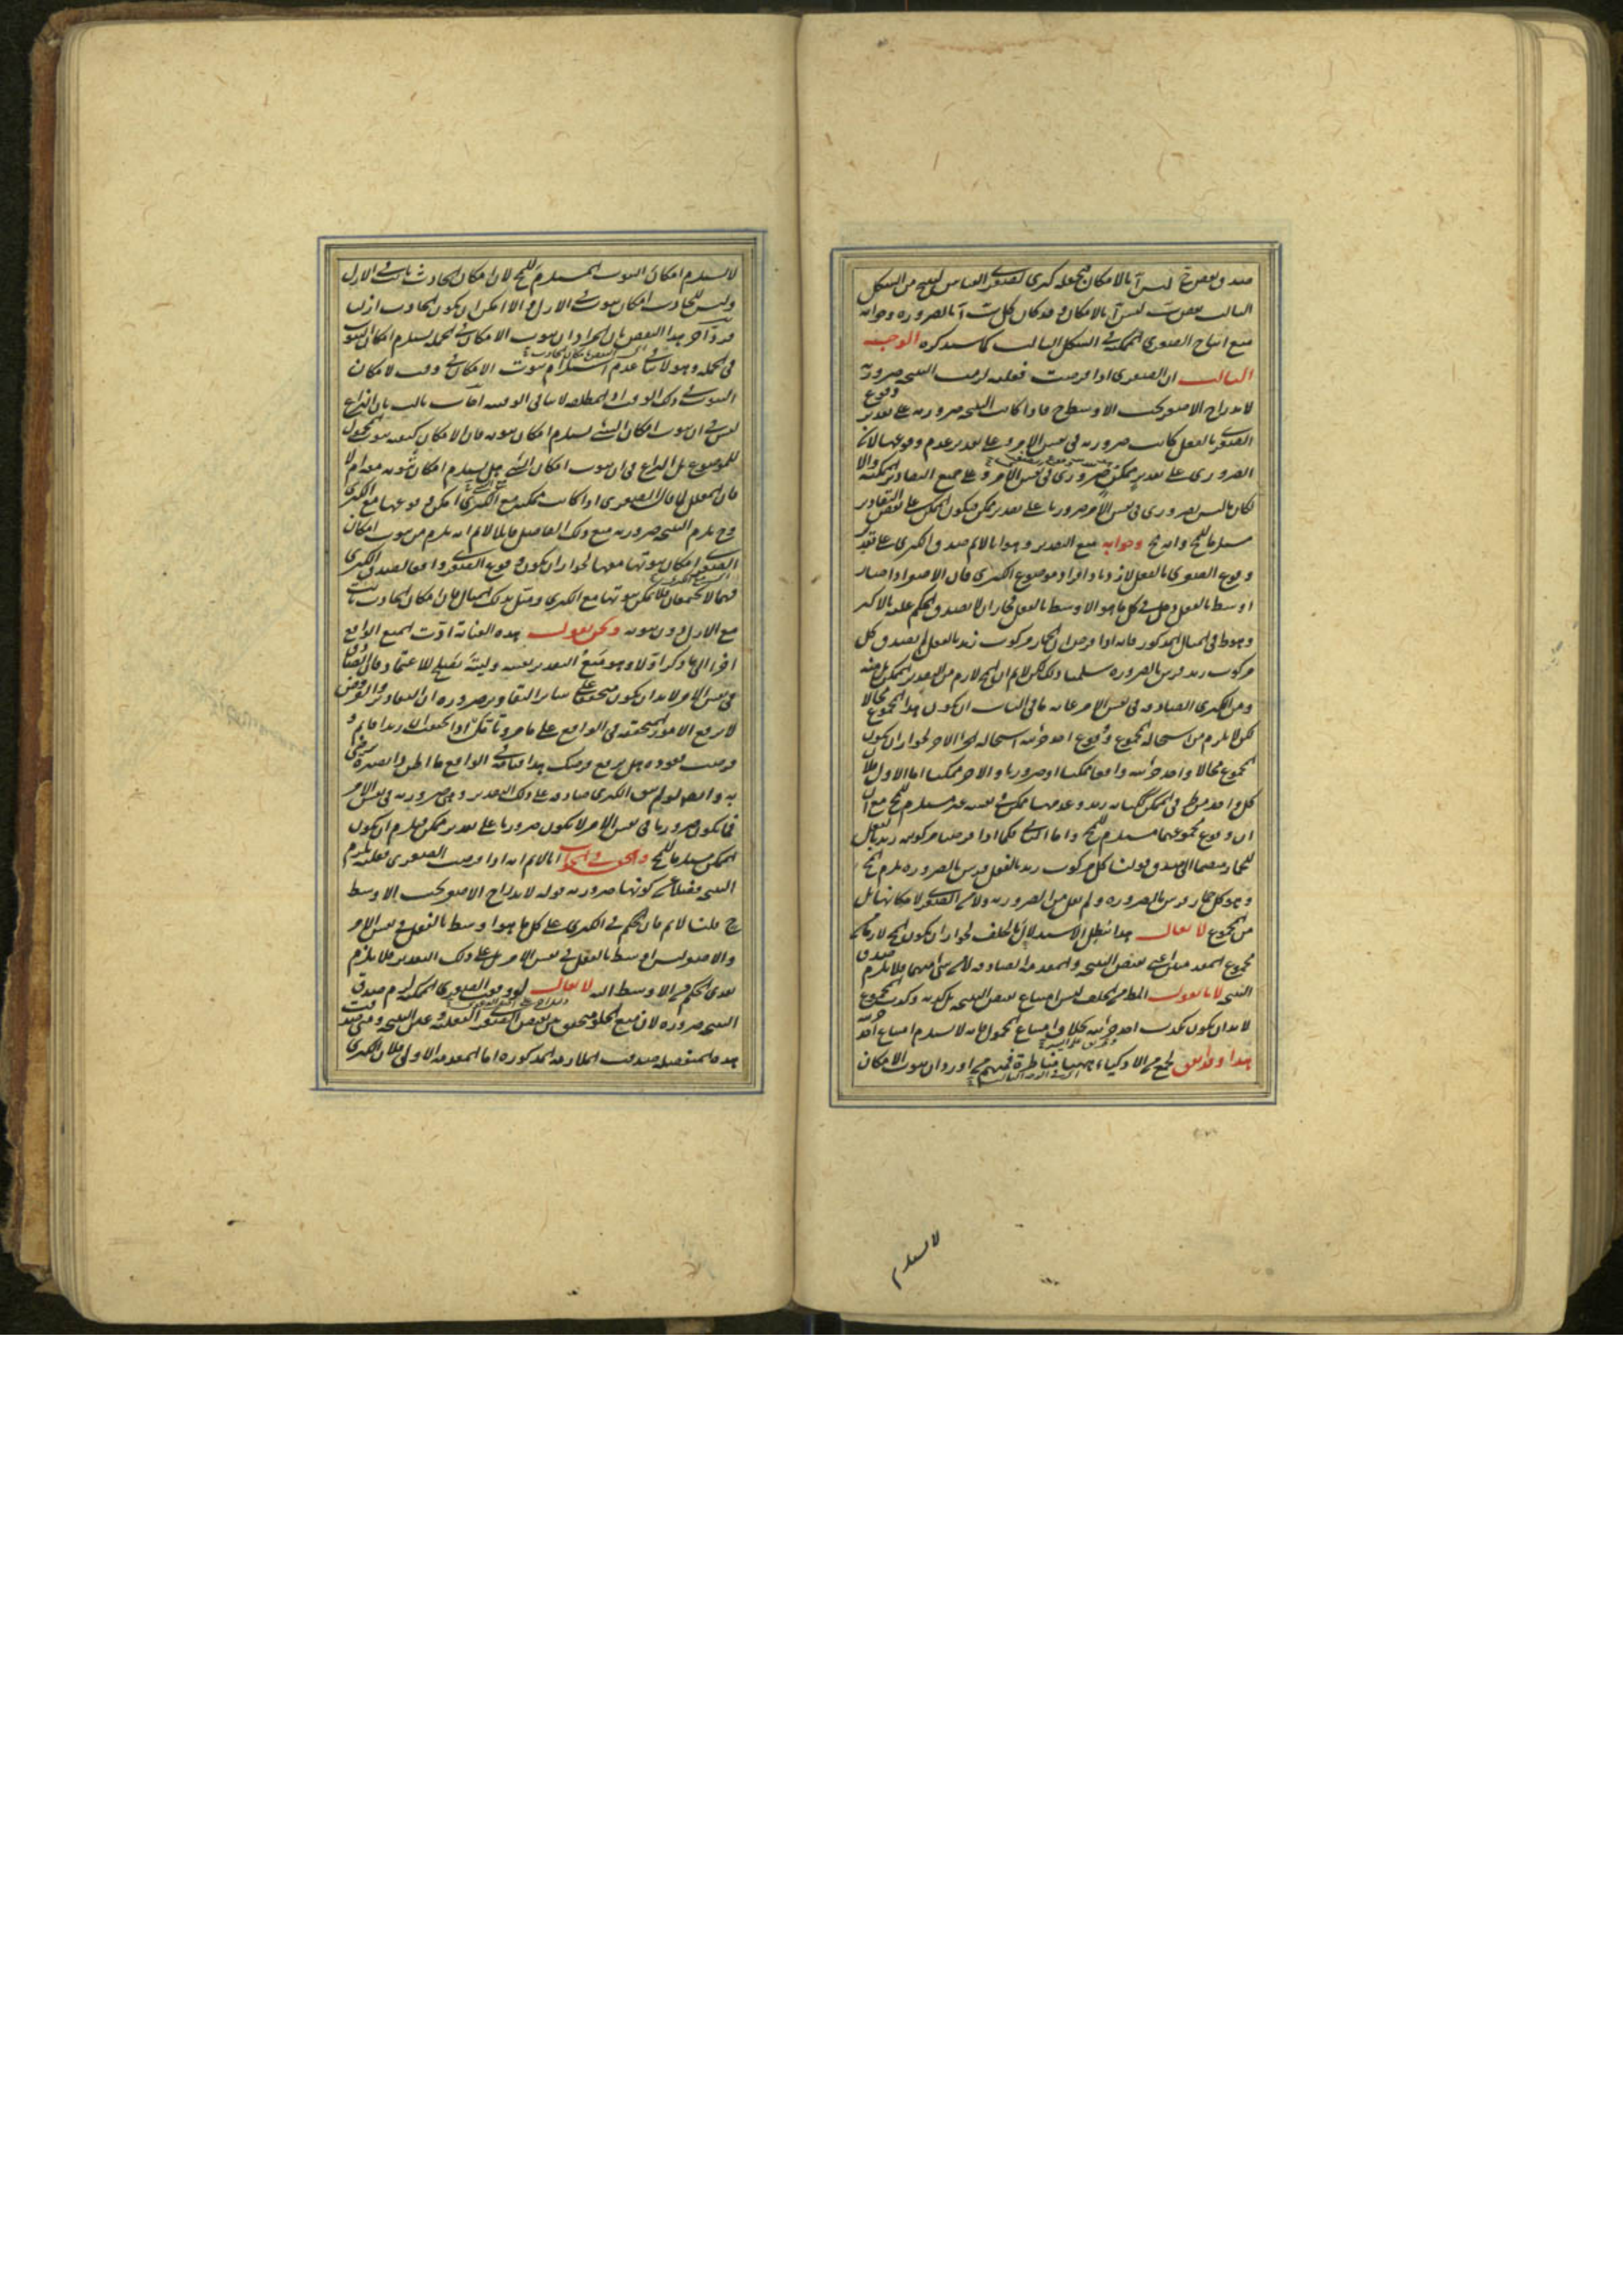 صدق بعض ج ليس آ بالامكان فنجعله كبرى لصغرى القياس لينتج من الشكل
الثالث بعض ب ليس آ بالامكان وقد كان كل ب آ بالضرورة وجوابه
منع انتاج الصغرى الممكنة في الشكل الثالث كما سنذكره الوجه
الثالث ان الصغرى اذا فرضت فعلية لزمت النتيجة ضرورية
لاندراج الاصغر تحت الاوسط ح فاذا كانت النتيجة ضرورية على تقدير وقوع
الصغرى بالفعل كانت ضرورية في نفس الامر وعلى تقدير عدم وقوعها لان
الضروري على تقدير ممكن ضروري في نفس الامر وعلى جميع التقادير الممكنة والا
لكان ما ليس بضروري في نفس الامر ضروريا على تقدير ممكن فيكون الممكن على بعض التقادير
مستلزما للمح وانه مح وجوابه منع التقدير وهو انا لانم صدق الكبرى على تقدير
وقوع الصغرى بالفعل لازدياد افراد موضوع الكبرى فان الاصغر اذا صار
اوسط بالفعل دخل في كل ما هو الاوسط بالفعل فجاز ان لا يصدق الحكم عليه بالاكبر
وهو ظ في المثال المذكور فانه اذا فرض ان الحمار مركوب زيد بالفعل لم يصدق كل
مركوب زيد فرس بالضرورة سلمنا ذلك لكن لانم ان المح لازم من التقدير الممكن بل منه
ومن الكبرى الصادقة في نفس الامر غاية ما في الباب ان يكون هذا المجموع محالا
لكن لا يلزم من استحالة المجموع وقوع احد جزئيه استحالة الجزء الاخر لجواز ان يكون
المجموع محالا واحد جزئيه واقعا ممكنا او ضروريا والاخر ممكنا اما الاول فلان
ان وقوع مجموعهما مستلزم للمح واما الثاني فكما اذا فرضنا مركوبية زيد بالفعل
للحمار منضما الى صدق قولنا كل مركوب زيد بالفعل فرس بالضرورة يلزم المح
وهو كل حمار فرس بالضرورة ولم يلزم من الضرورية ولا من الصغرى لامكانها بل
من المجموع لا يقال هذا يبطل الاستدلال بالخلف لجواز ان يكون المح لازما من
مجموع المقدمتين اعني نقيض النتيجة والمقدمة الصادقة لا من شيء منهما فلا يلزم صدق
النتيجة لانا نقول المط من الخلف ليس امتناع نقيض النتيجة بل كذبه وكذب المجموع
لابد ان يكون بكذب احد جزئيه بخلاف امتناع المجموع فانه لا يستلزم امتناع احد جزئيه
هذا وقد اتفق لجمع من الاذكياء ههنا مناظرة فمنهم من اورد ان ثبوت الامكان
لا يستلزم
لا يستلزم امكان الثبوت المستلزم للمح لان امكان الحادث ثابت في الازل
وليس للحادث امكان ثبوت في الازل والا امكن ان يكون الحادث ازليا
ورد اخر هذا النقض بان المراد ان ثبوت الامكان في الجملة يستلزم امكان الثبوت
في الجملة وهو لا ينافي عدم استلزام ثبوت الامكان في وقت لامكان
الثبوت في ذلك الوقت اذ المطلقة لا تنافي الوقتية اجاب ثالث بان النزاع
ليس في ان ثبوت امكان الشيء يستلزم امكان ثبوته فان الامكان كيفية ثبوت المحمول
للموضوع بل النزاع في ان ثبوت امكان الشيء هل يستلزم امكان ثبوته مع امر لا
فان المعلل لما قال الصغرى اذا كانت ممكنة مع الكبرى امكن وقوعها مع الكبرى
وح يلزم النتيجة ضرورية منع ذلك الفاضل قائلا لانم انه يلزم من ثبوت امكان
الصغرى امكان ثبوتها معها لجواز ان يكون وقوع الصغرى رافعا لصدق الكبرى
فهما لا يجتمعان فلا يمكن ثبوتها مع الكبرى ومثل بذلك المثال فان امكان الحادث ثابت
مع الازل دون ثبوته ونحن نقول هذه العناية ادت لجميع الوقائع
اخرا الى ما ذكر اولا وهو منع التقدير بعينه وليته يصلح للاعتماد فان الصادق
في نفس الامر لابد ان يكون متحققا على سائر التقادير ضرورة ان التقادير والفروض
لا يرفع الامور المتحققة في الواقع على ما هو ثابت
فرضت قعوده هل يرفع فرضك هذا قيامه في الواقع ما اظن ذا بصيرة يرضى
به وايضا لو لم يبق الكبرى صادقة على ذلك التقدير وهي ضرورية في نفس الامر
فما يكون ضروريا في نفس الامر لا يكون ضروريا على تقدير ممكن فيلزم ان يكون
الممكن مستلزما للمح والحق في الجواب انا لانم انه اذا فرضت الصغرى فعلية يلزم
النتيجة فضلا عن كونها ضرورية قوله لاندراج الاصغر تحت الاوسط
ح قلنا لانم فان الحكم في الكبرى على كل ما هو اوسط بالفعل في نفس الامر
والاصغر ليس اوسط بالفعل في نفس الامر بل على ذلك التقدير فلا يلزم
تعدي الحكم من الاوسط اليه لا يقال لو وقعت الصغرى الممكنة لزم صدق
النتيجة ضرورة لان منع الخلو متحقق بين نقيض الصغرى الفعلية وعين النتيجة ومتى صدقت
هذه المنفصلة صدقت الملازمة المذكورة اما المقدمة الاولى فلان الكبرى